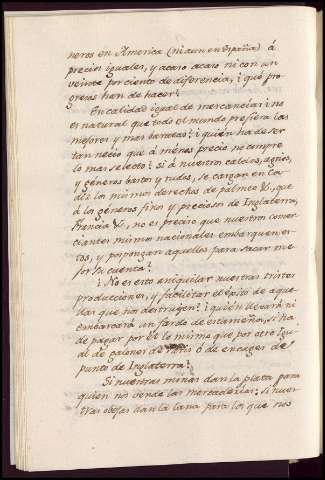 neros en America (ni aun en España) á
precios iguales, y acaso acaso ni con un
veinte por ciento de diferencia, ¿qué pro
gresos han de hacer?
En calidad igual de mercancias ¿no
es natural que todo el mundo prefiera las
mejores y mas baratas? ¿quién ha de ser
tan necio que á ménos precio no compre
lo mas selecto? si á nuestros caldos, agrios,
y géneros bastos y rudos, se cargan en Ca-
diz los mismos derechos de palmeo &c, que
á los géneros finos y preciosos de Inglaterra,
Francia &c, no es preciso que nuestros comer
ciantes mismos nacionales embarquen es-
tos, y pospongan aquellos para sacar me
jor su cuenta?
¿No es esto aniquilar nuestras tristes
producciones, y facilitar el éxito de aque-
llas que nos destruyen? ¿quién llevará ni
embarcará un fardo de estameña, si ha
de pagar por él lo mismo que por otro igu-
al de galones de Paris ó de encages de
punto de Inglaterra?
Si nuestras minas dan la plata para
quien nos vende las mercaderias: si nues-
tras obejas dan la lana para los que nos